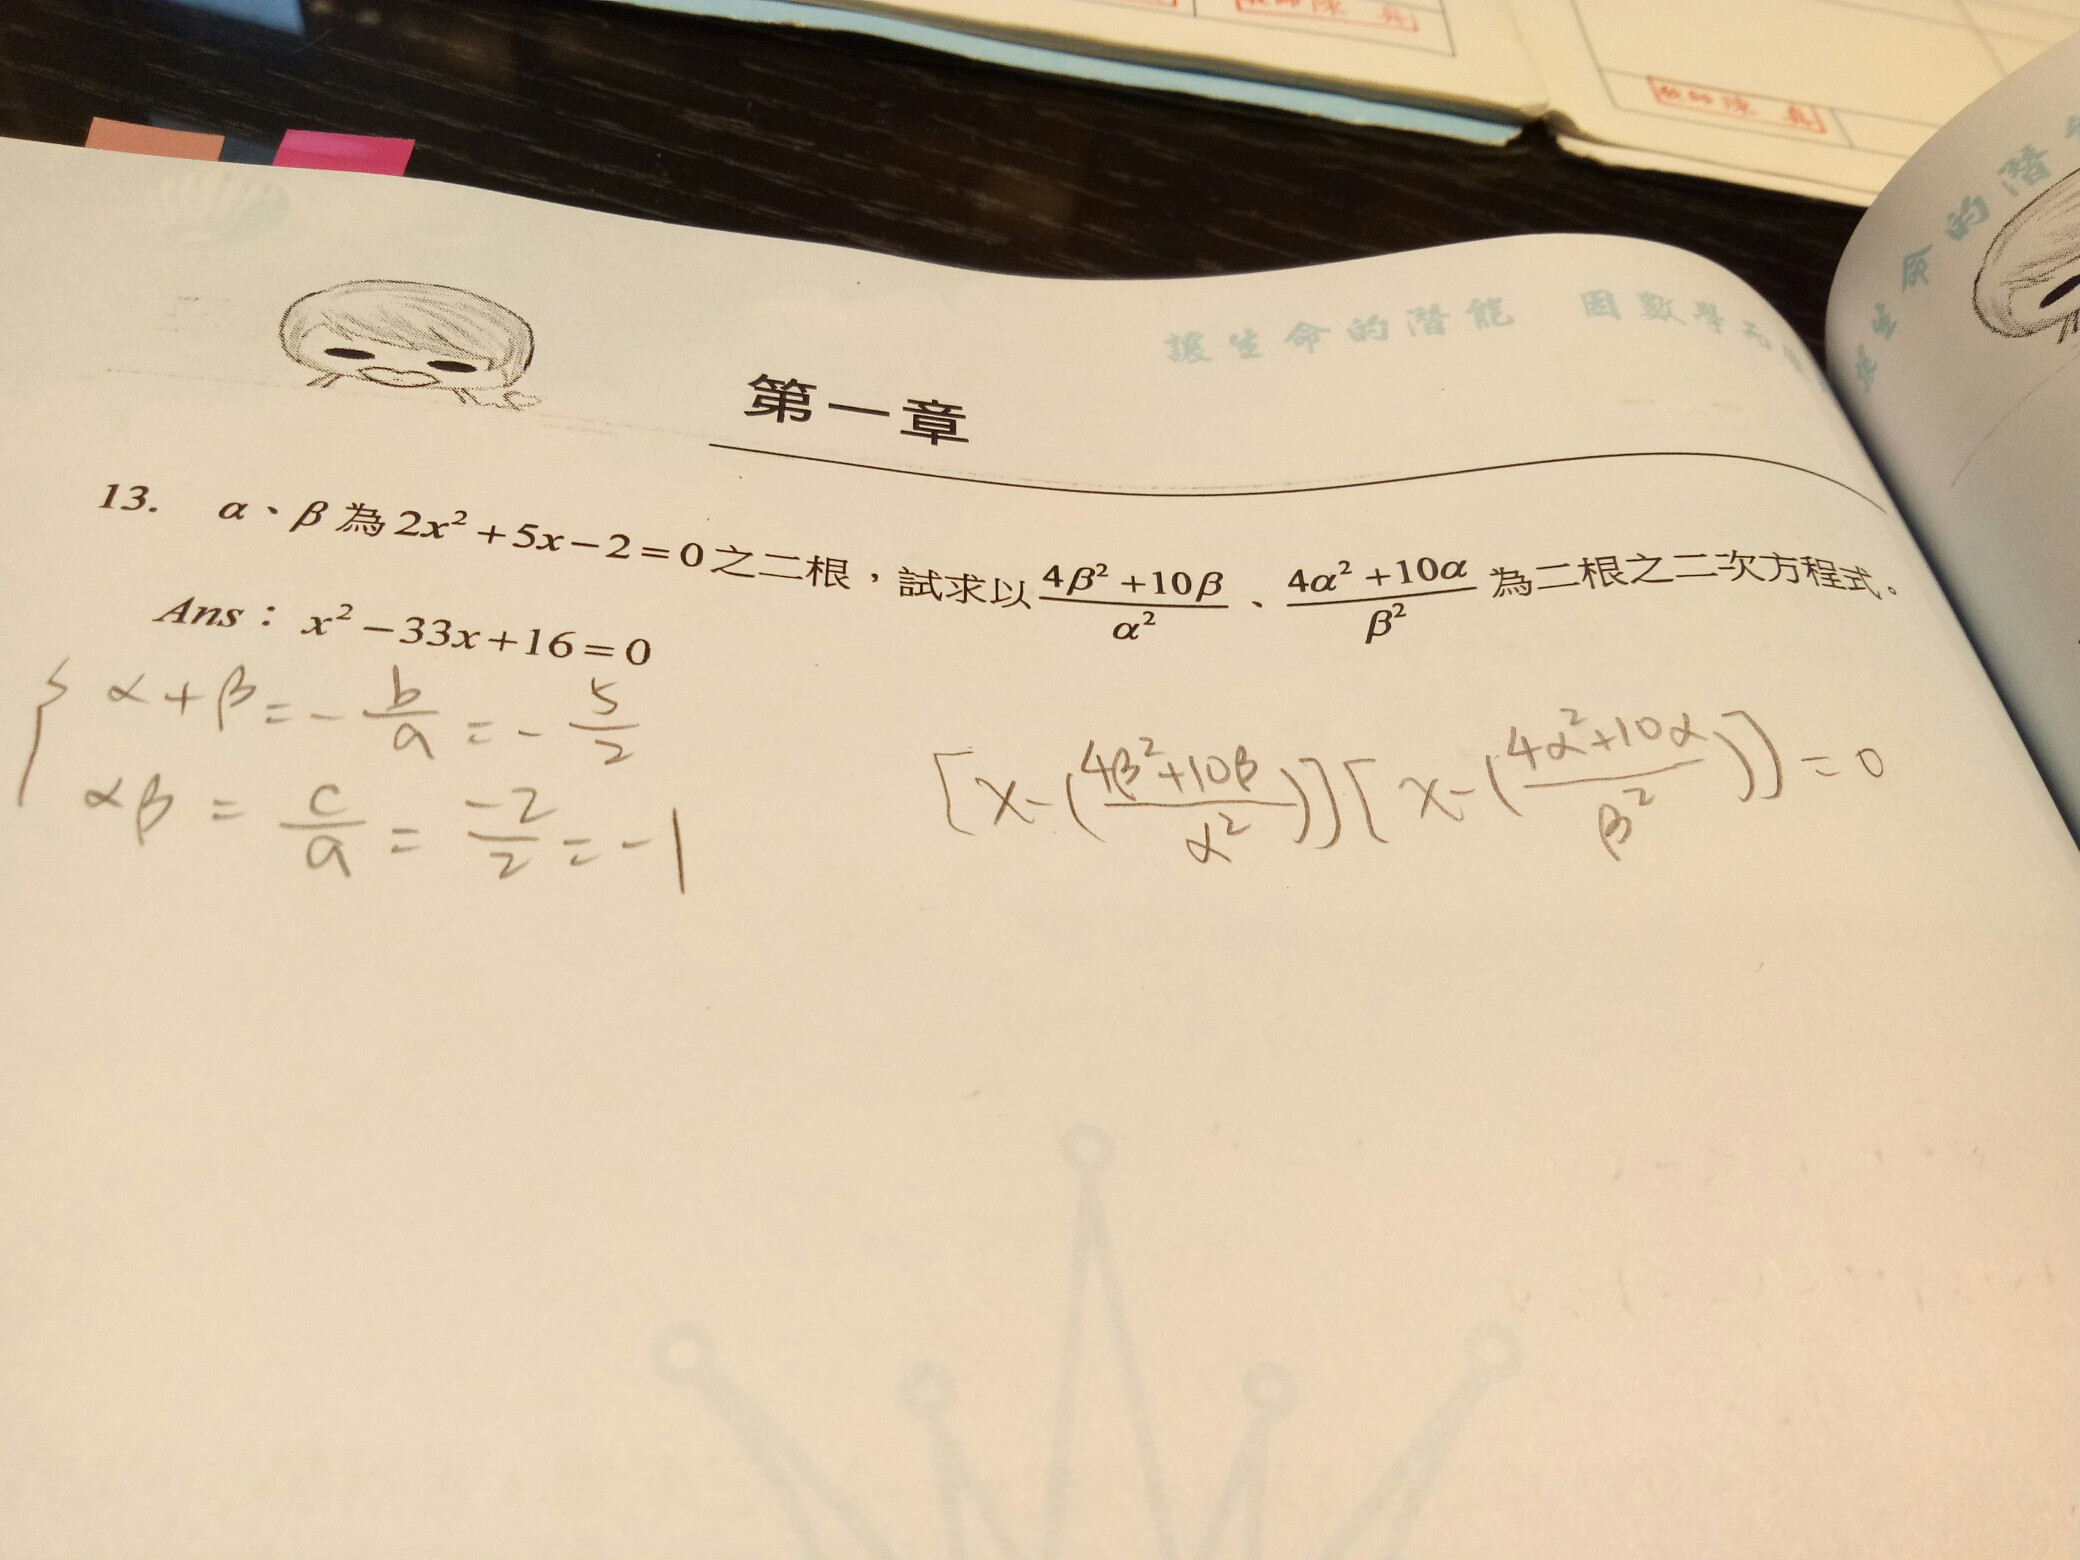 教師陳
教師陳
讓生命的潛能 因數學而
第一章
13. α、β為2x²+5x-2=0之二根，試求以\frac{4β²+10β}{α²}、\frac{4α²+10α}{β²}為二根之二次方程式。
Ans：x²-33x+16=0
α+β=-\frac{b}{a}=-\frac{5}{2}
αβ=\frac{c}{a}=\frac{-2}{2}=-1
[x-(\frac{4β²+10β}{α²})][x-(\frac{4α²+10α}{β²})]=0
的潛